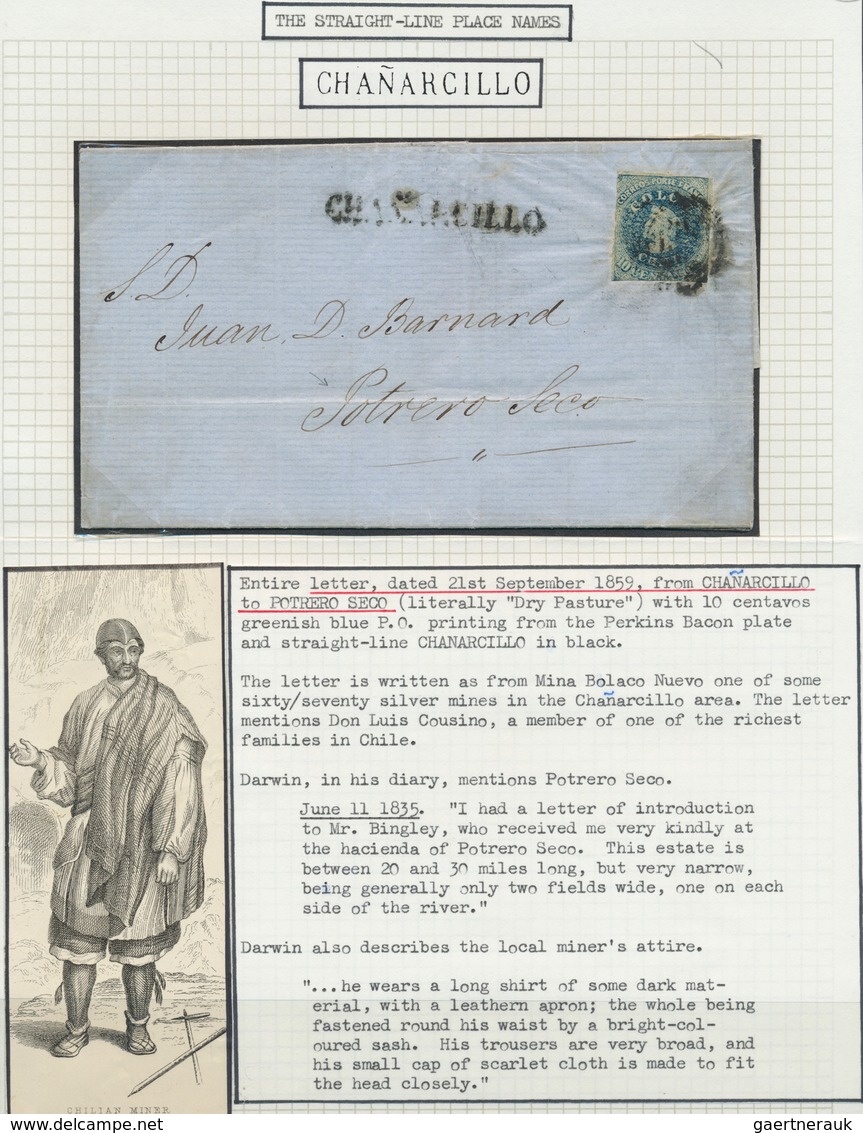 THE STRAIGHT-LINE PLACE NAMES
CHAÑARCILLO
CHAÑARCILLO
CORREOS PORTE FRANCO
COLON
10 CENTAVOS
S. D.
Juan. D. Barnard
Potrero Seco
"
Entire letter, dated 21st September 1859, from CHAÑARCILLO
to POTRERO SECO (literally "Dry Pasture") with 10 centavos
greenish blue P.O. printing from the Perkins Bacon plate
and straight-line CHANARCILLO in black.
The letter is written as from Mina Bolaco Nuevo one of some
sixty/seventy silver mines in the Chañarcillo area. The letter
mentions Don Luis Cousino, a member of one of the richest
families in Chile.
Darwin, in his diary, mentions Potrero Seco.
June 11 1835. "I had a letter of introduction
to Mr. Bingley, who received me very kindly at
the hacienda of Potrero Seco. This estate is
between 20 and 30 miles long, but very narrow,
being generally only two fields wide, one on each
side of the river."
Darwin also describes the local miner's attire.
"...he wears a long shirt of some dark mat-
erial, with a leathern apron; the whole being
fastened round his waist by a bright-col-
oured sash. His trousers are very broad, and
his small cap of scarlet cloth is made to fit
the head closely."
CHILIAN MINER
gaertnerauk